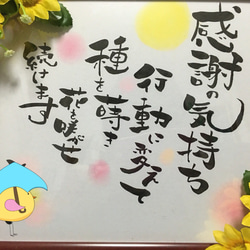 感謝の気持ち
行動に変えて
種を蒔き
花を咲かせ
続けます